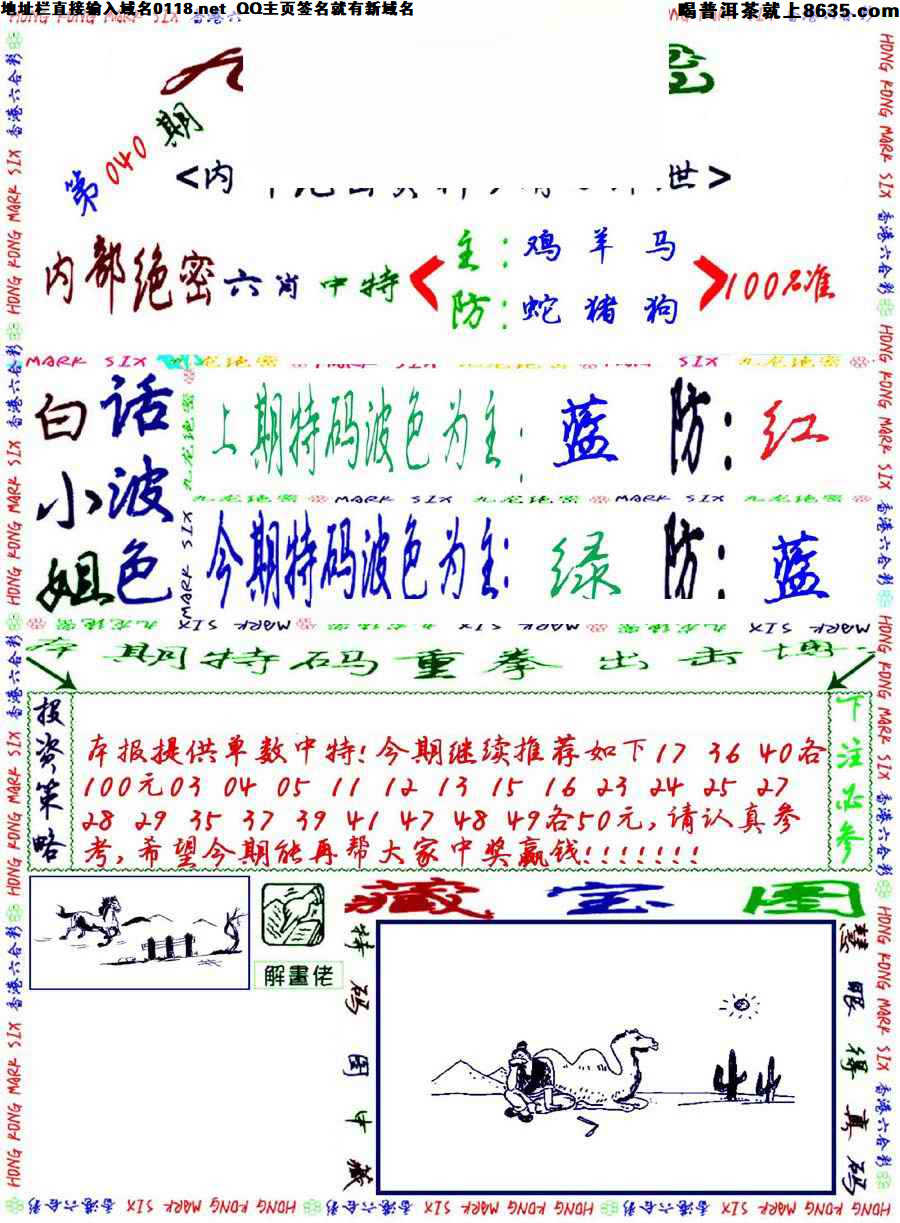 地址栏直接输入域名0118.net QQ主页签名就有新域名
喝普洱茶就上8635.com
HONG KONG MARK SIX 香港六合彩
第040期
<内
世>
内部绝密六肖中特
主:鸡羊马
防:蛇猪狗
100%准
MARK SIX 九龙绝密
白话小波姐色
上期特码波色为主:蓝 防:红
九龙绝密 MARK SIX 九龙绝密 MARK SIX 九龙绝密
今期特码波色为主:绿 防:蓝
本期特码重拳出击
投资策略
本报提供单数中特!今期继续推荐如下17 36 40各
100元03 04 05 11 12 13 15 16 23 24 25 27
28 29 35 37 39 41 47 48 49各50元,请认真参
考,希望今期能再帮大家中奖赢钱!!!!!!!
下注必参
解畫佬
藏宝图
特码图中藏
慧眼得真码
HONG KONG MARK SIX 香港六合彩